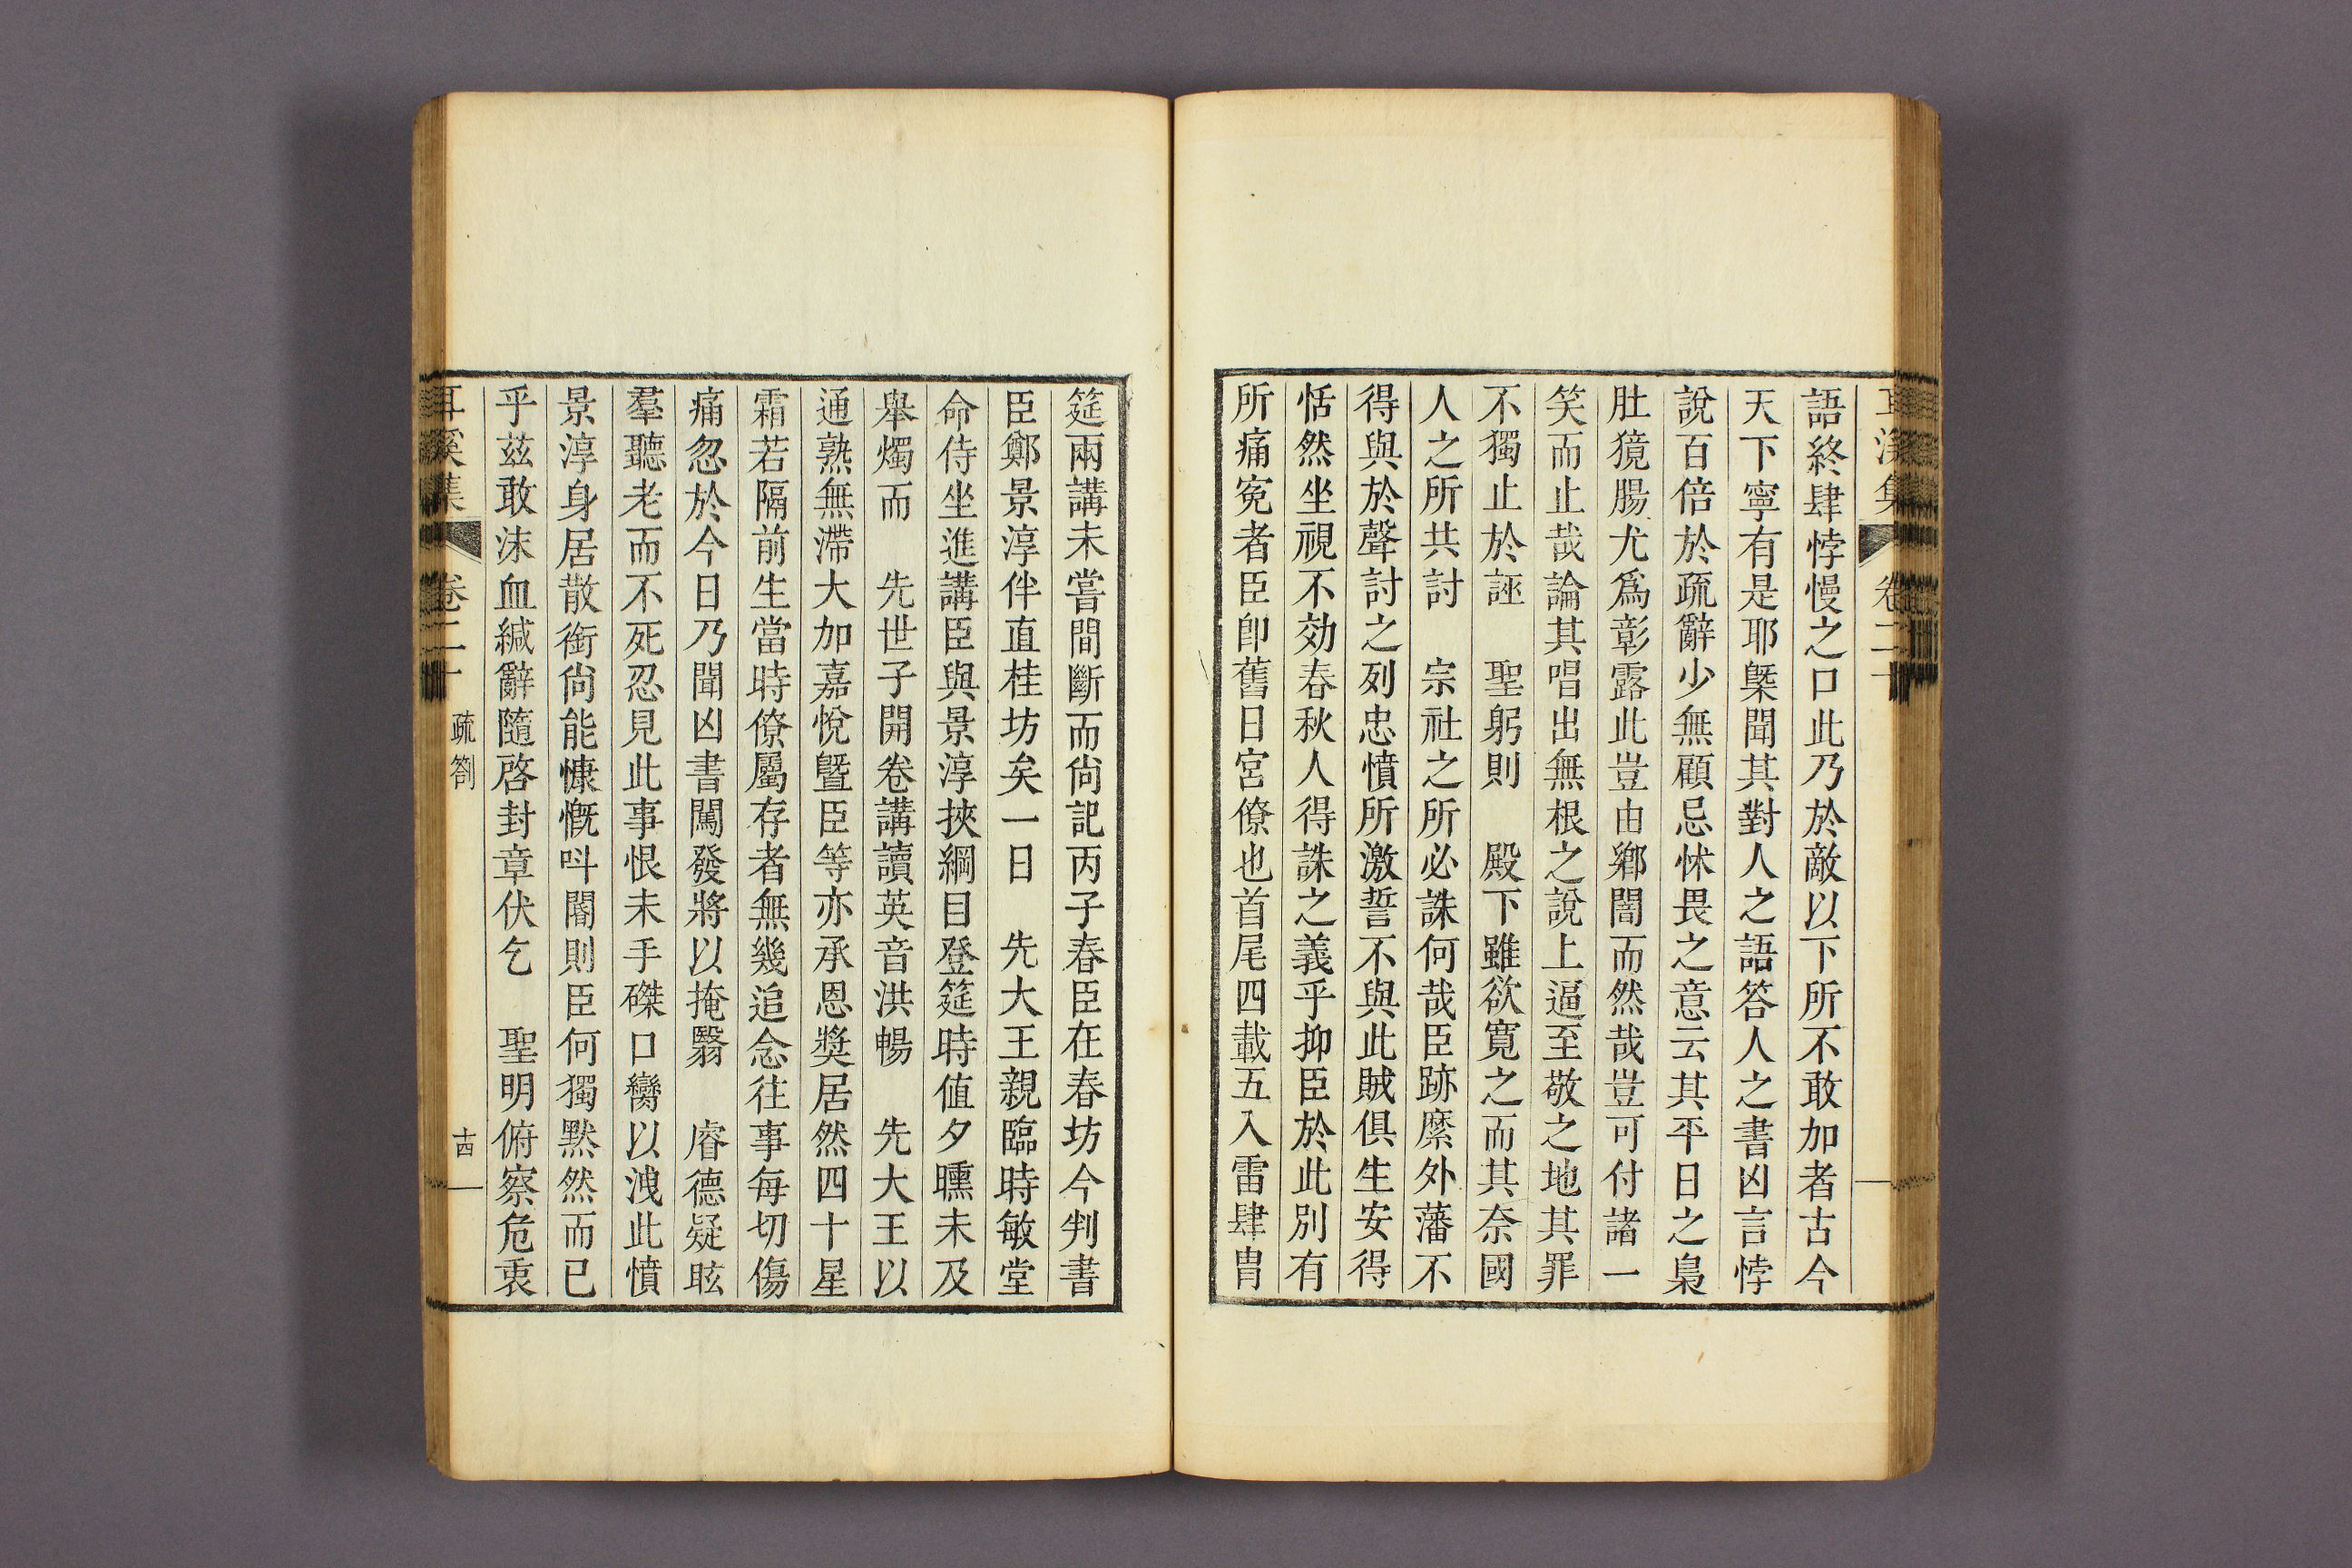 耳溪集 卷二十
語終肆悖慢之口此乃於敵以下所不敢加者古今
天下寧有是耶槩聞其對人之語答人之書凶言悖
說百倍於疏辭少無顧忌怵畏之意云其平日之梟
肚獍腸尤爲彰露此豈由鄕闇而然哉豈可付諸一
笑而止哉論其唱出無根之說上逼至敬之地其罪
不獨止於誣 聖躬則 殿下雖欲寬之而其奈國
人之所共討 宗社之所必誅何哉臣跡縻外藩不
得與於聲討之列忠憤所激誓不與此賊俱生安得
恬然坐視不効春秋人得誅之義乎抑臣於此別有
所痛寃者臣卽舊日宮僚也首尾四載五入雷肆冑
筵兩講未嘗間斷而尙記丙子春臣在春坊今判書
臣鄭景淳伴直桂坊矣一日 先大王親臨時敏堂
命侍坐進講臣與景淳挾綱目登筵時値夕曛未及
舉燭而 先世子開卷講讀英音洪暢 先大王以
通熟無滯大加嘉悅曁臣等亦承恩奬居然四十星
霜若隔前生當時僚屬存者無幾追念往事每切傷
痛忽於今日乃聞凶書闖發將以掩翳 睿德疑眩
羣聽老而不死忍見此事恨未手磔口臠以洩此憤
景淳身居散銜尙能慷慨叫閽則臣何獨默然而已
乎玆敢沫血緘辭隨啓封章伏乞 聖明俯察危衷
耳溪集 卷二十 疏箚 十四